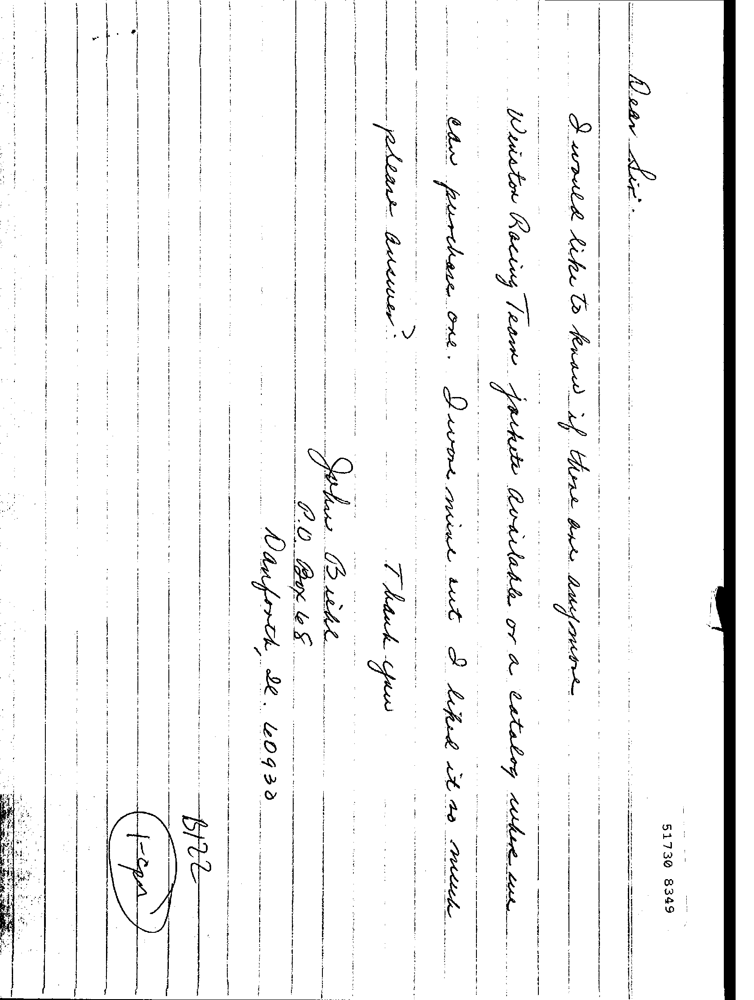 51730 8349
Dear Sir:
I would like to know if there are anymore
Winston Racing Team jackets available or a catalog where we
can purchase one. I wore mine out I liked it so much
please answer. Thank you
John Biehl
P.O Box 68
Danforth, Il. 60930
B122
1-cpn